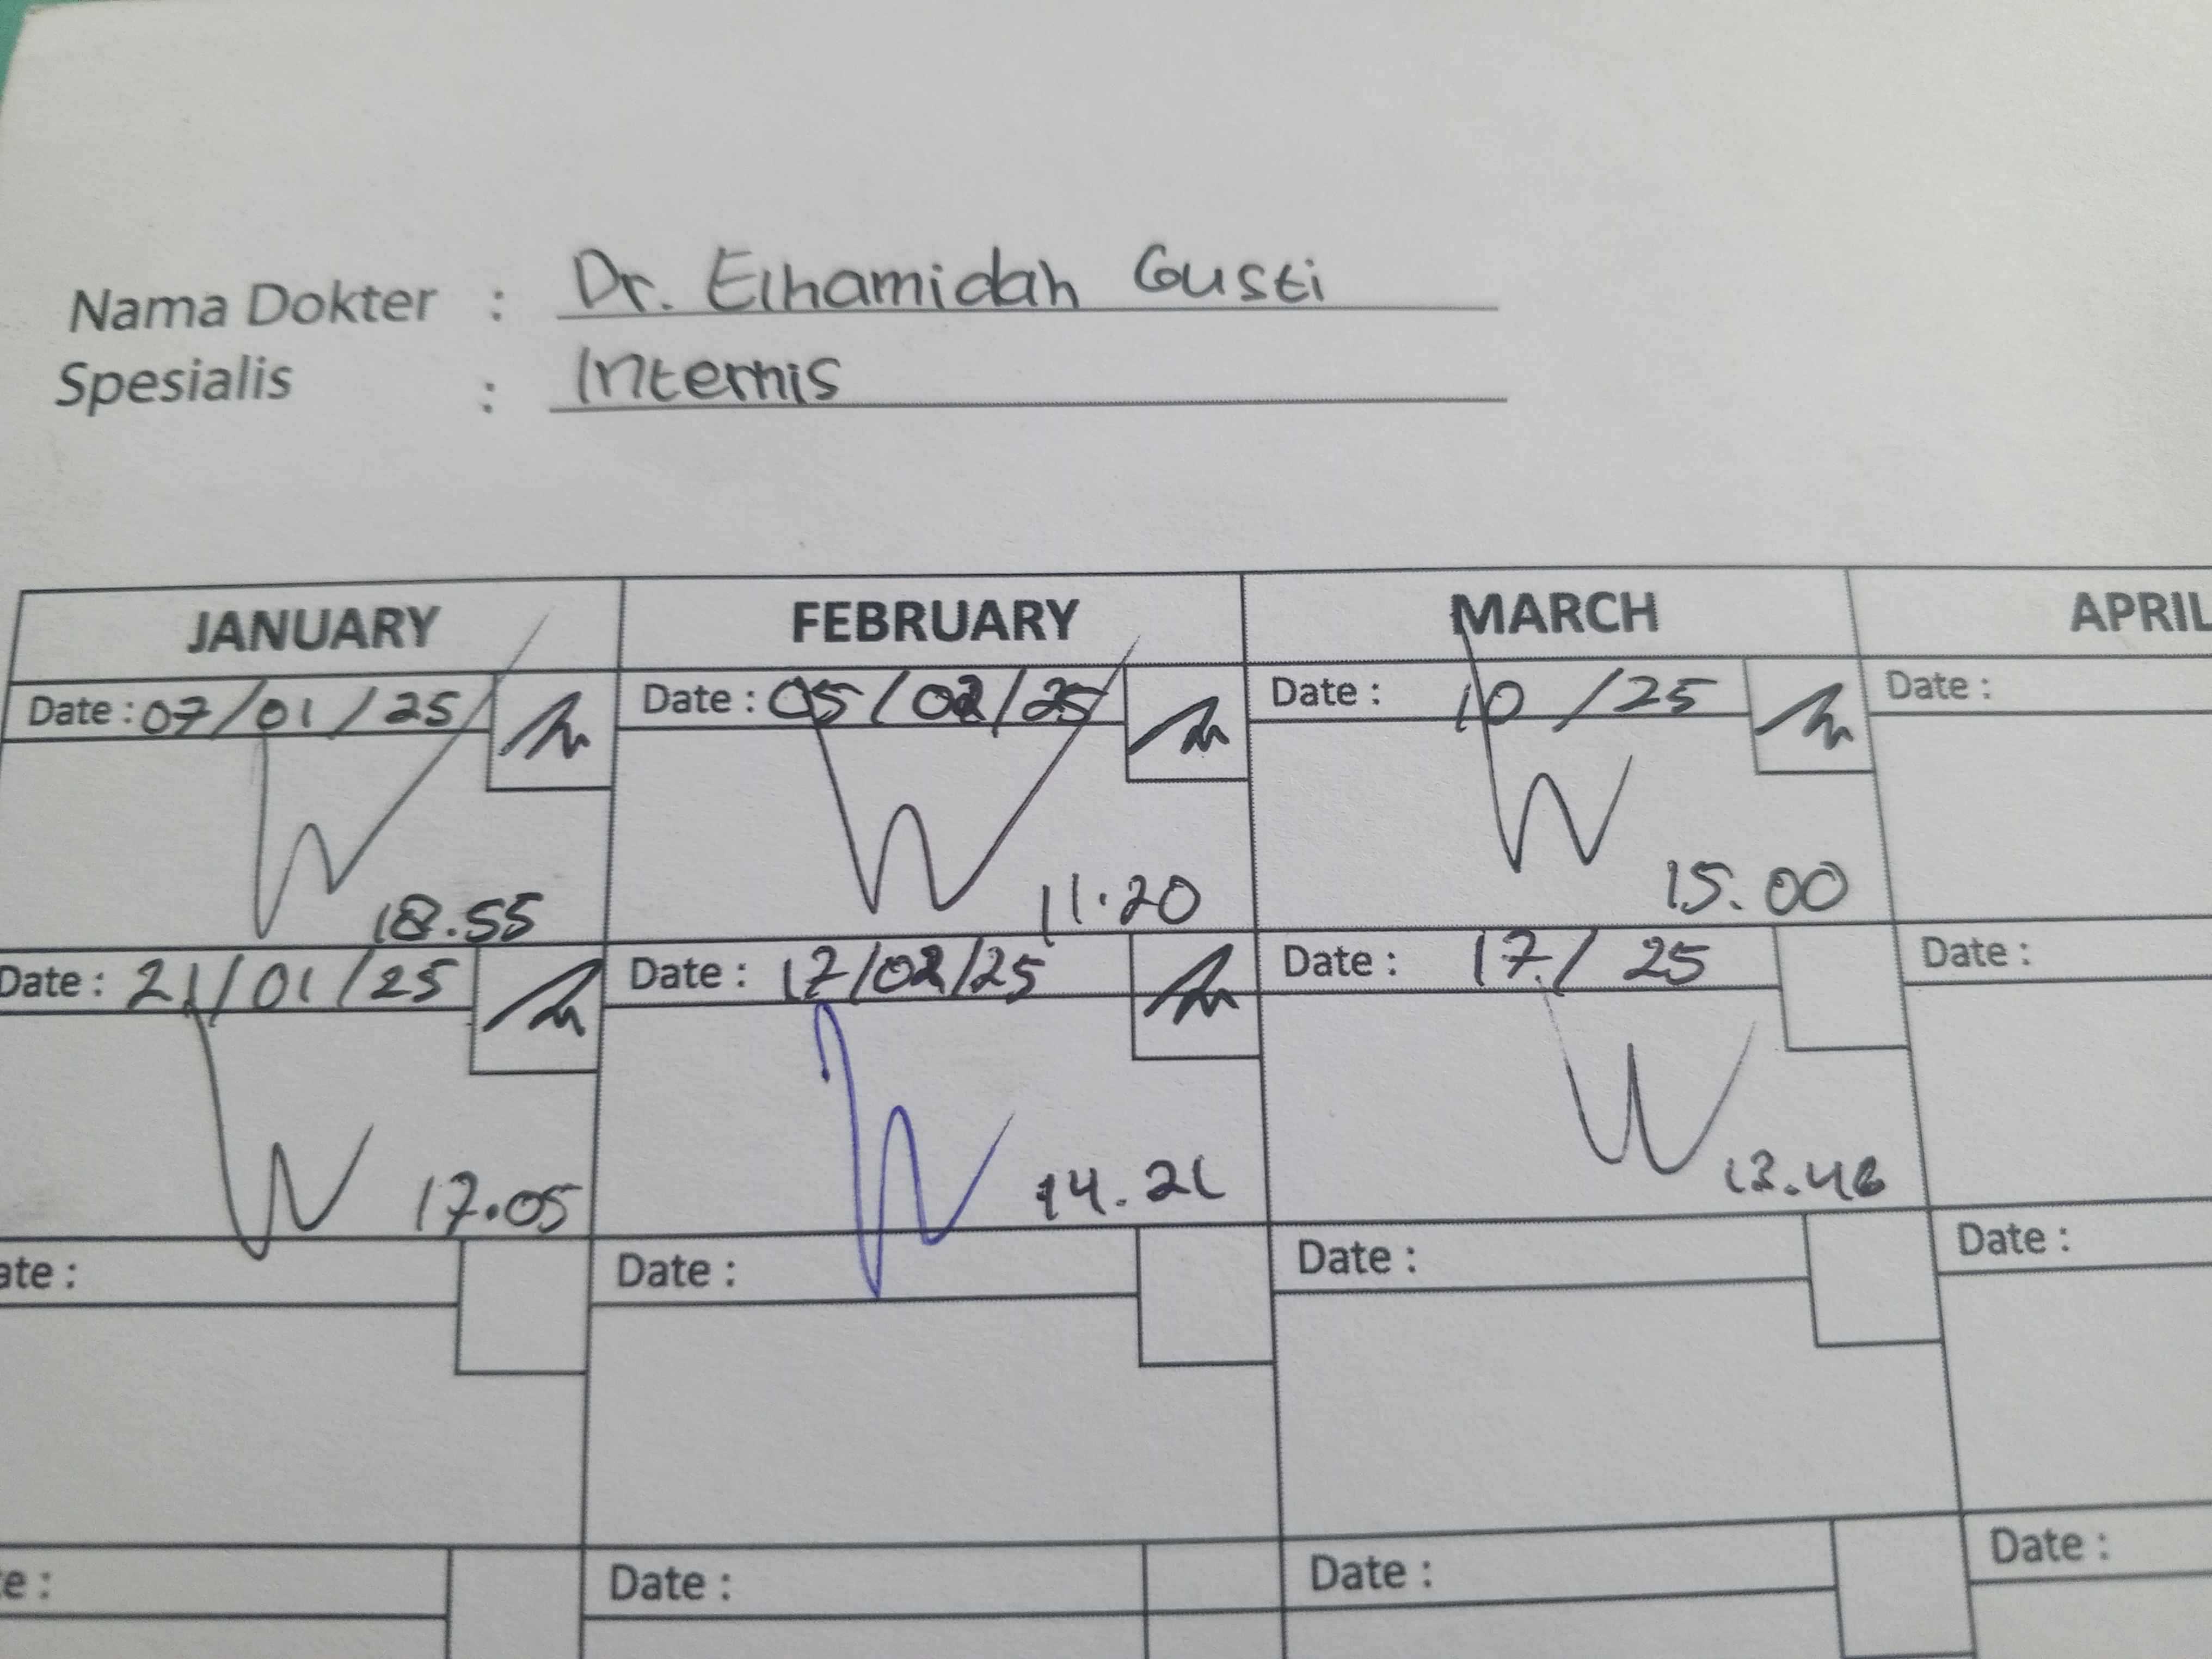 Nama Dokter : Dr. Elhamidah Gusti
Spesialis : Internis
JANUARY FEBRUARY MARCH APRIL
Date : 07/01/25 Date : 05/02/25 Date : 10 /25 Date :
18.55 11.20 15.00
Date : 21/01/25 Date : 17/02/25 Date : 17/ 25 Date :
17.05 14.21
ate : Date : Date : Date :
e : Date : Date : Date :